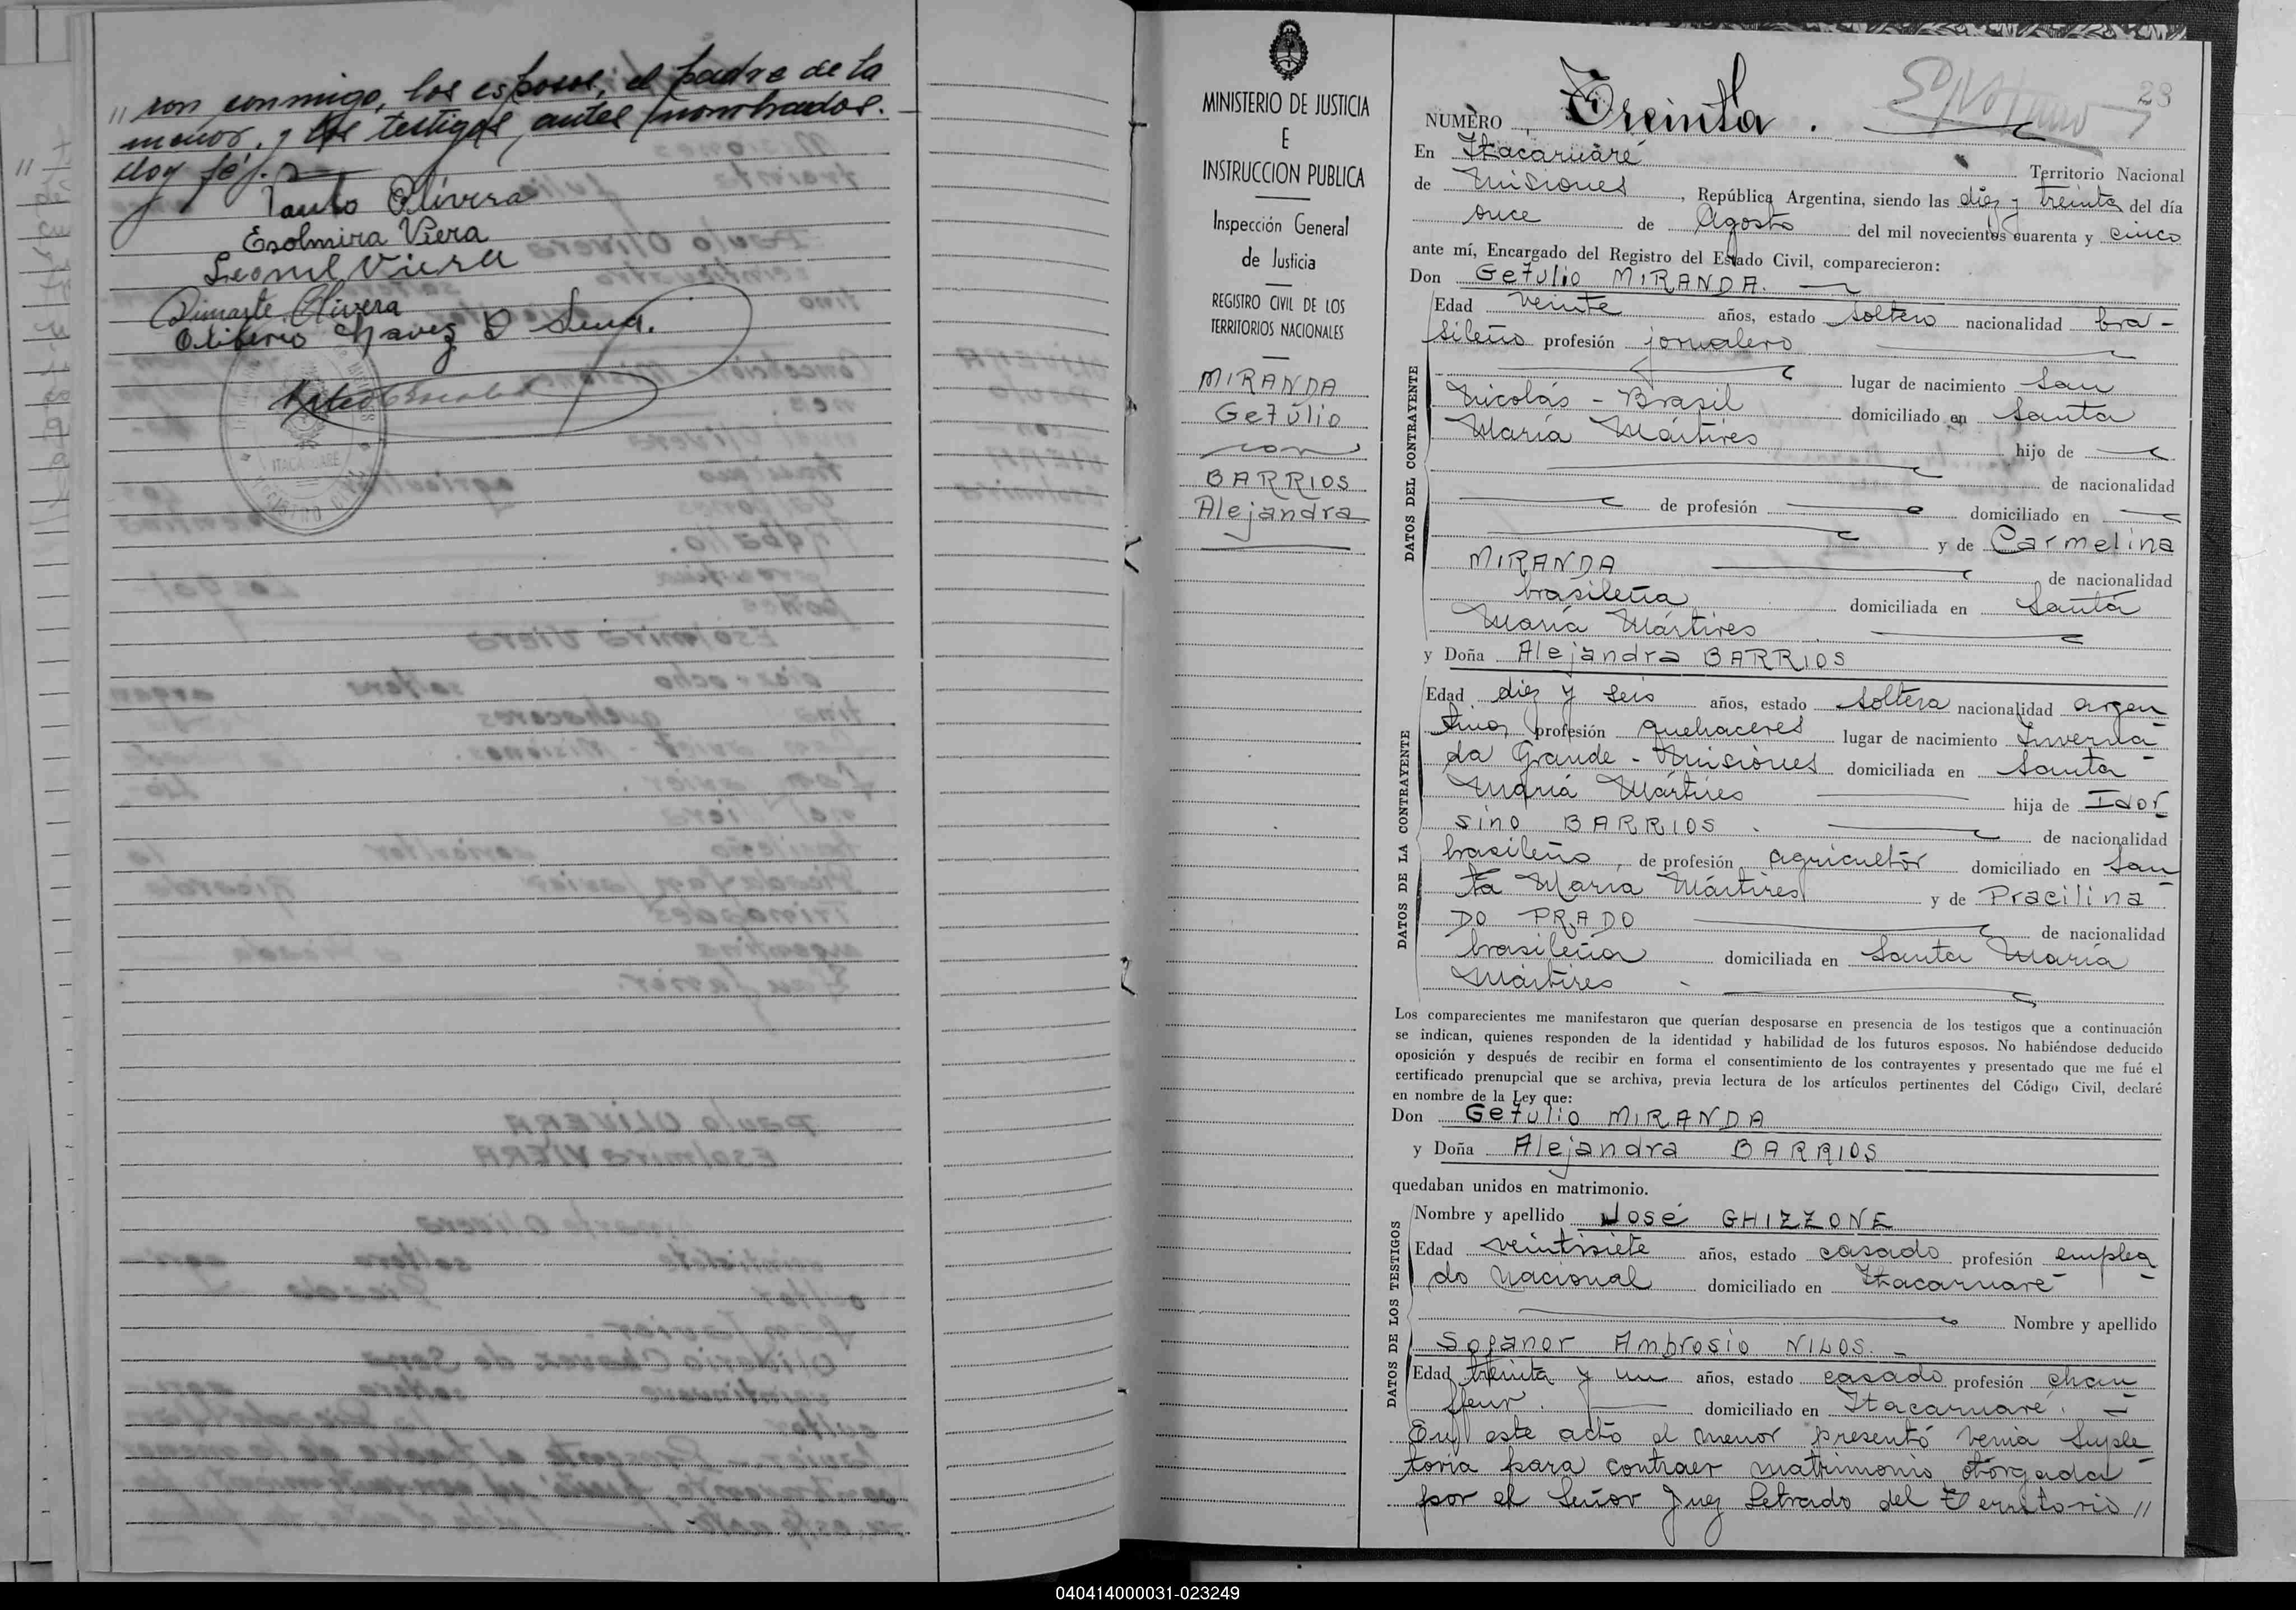 " ron conmigo, los esposos, el padre de la
menor, y los testigos, antes nombrados.
doy fé.
Paulo Olivera
Esolmira Viera
Leonel Viera
Dinarte Olivera
Oliberio Chavez D Sena.
ITACARUARE
MINISTERIO DE JUSTICIA
E
INSTRUCCION PUBLICA
Inspección General
de Justicia
REGISTRO CIVIL DE LOS
TERRITORIOS NACIONALES
MIRANDA
Getúlio
con
BARRIOS
Alejandra
28
NUMÈRO Treinta.
En Itacaruaré Territorio Nacional
de Misiones, República Argentina, siendo las diez y treinta del día
once de Agosto del mil novecientos cuarenta y cinco
ante mí, Encargado del Registro del Estado Civil, comparecieron:
Don Getulio MIRANDA.
DATOS DEL CONTRAYENTE
Edad veinte años, estado soltero nacionalidad bra-
sileño profesión jornalero
lugar de nacimiento San
Nicolás - Brasil domiciliado en Santa
María Mártires hijo de
de nacionalidad
de profesión domiciliado en
y de Carmelina
MIRANDA de nacionalidad
brasileña domiciliada en Santa
María Mártires
y Doña Alejandra BARRIOS
DATOS DE LA CONTRAYENTE
Edad diez y seis años, estado soltera nacionalidad argen
tina, profesión quehaceres lugar de nacimiento Inverna
da Grande - Misiones domiciliada en Santa
María Mártires hija de Idor
sino BARRIOS. de nacionalidad
brasileño, de profesión agricultor domiciliado en San
ta María Mártires y de Pracilina
DO PRADO de nacionalidad
brasileña domiciliada en Santa María
Mártires
Los comparecientes me manifestaron que querían desposarse en presencia de los testigos que a continuación
se indican, quienes responden de la identidad y habilidad de los futuros esposos. No habiéndose deducido
oposición y después de recibir en forma el consentimiento de los contrayentes y presentado que me fué el
certificado prenupcial que se archiva, previa lectura de los artículos pertinentes del Código Civil, declaré
en nombre de la Ley que:
Don Getulio MIRANDA
y Doña Alejandra BARRIOS
quedaban unidos en matrimonio.
DATOS DE LOS TESTIGOS
Nombre y apellido José GHIZZONE
Edad veintisiete años, estado casado profesión emplea
do Nacional domiciliado en Itacaruaré
Nombre y apellido
Sofanor Ambrosio NILOS.
Edad treinta y un años, estado casado profesión chau
ffeur. domiciliado en Itacaruaré.
En este acto el menor presentó venia suple
toria para contraer matrimonio, otorgada
por el Señor Juez Letrado del Territorio //
040414000031-023249